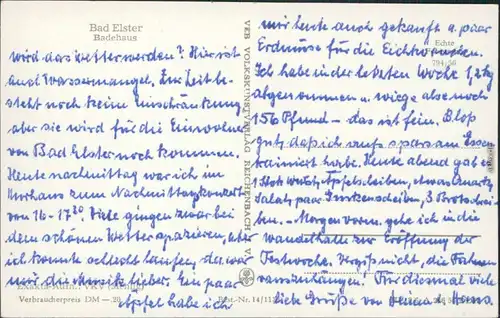 Bad Elster
Badehaus
wird das Wetter werden? Hier ist
auch Wassermangel. Zur Zeit be-
steht noch keine Einschränkung
aber sie wird für die Einwohner
von Bad Elster noch kommen.
Heute nachmittag war ich im
Kurhaus zum Nachmittagkonzert
von 16-17³⁰. Viele gingen zwar bei
dem schönen Wetter spazieren, aber
ich konnte schlecht laufen, da war
mir die Musik lieber. Ein paar
Äpfel habe ich
Verbraucherpreis DM
Best.-Nr. 14/11
VEB VOLKSKUNSTVERLAG REICHENBACH
Echte
mir heute auch gekauft u. paar
Erdnüsse für die Eichkätzchen.
Ich habe in der letzten Woche 1,2 kg
abgenommen u. wiege also noch
156 Pfund - das ist fein. Bloß
gut, daß ich auf sparsam Essen
trainiert habe. Heute abend gab es
1 Stck Wurst, Apfelscheiben, etwas Quark,
Salat, paar Gurkenscheiben, 3 Brotschei-
ben. - Morgen vorm. gehe ich in die
Wandelhalle zur Eröffnung der
Festwoche. Vergiß nicht, die Fahnen
rauszuhängen. Für diesmal viele
liebe Grüße von